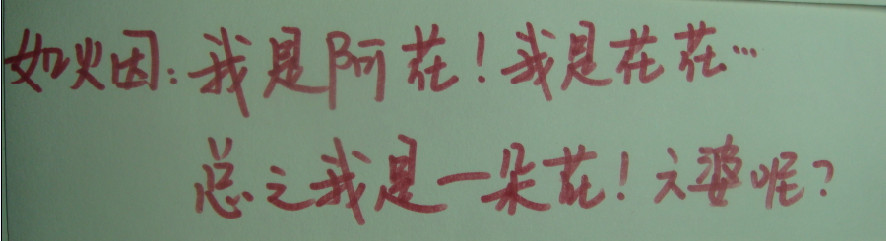 如烟：我是阿花！我是花花…
总之我是一朵花！六婆呢？